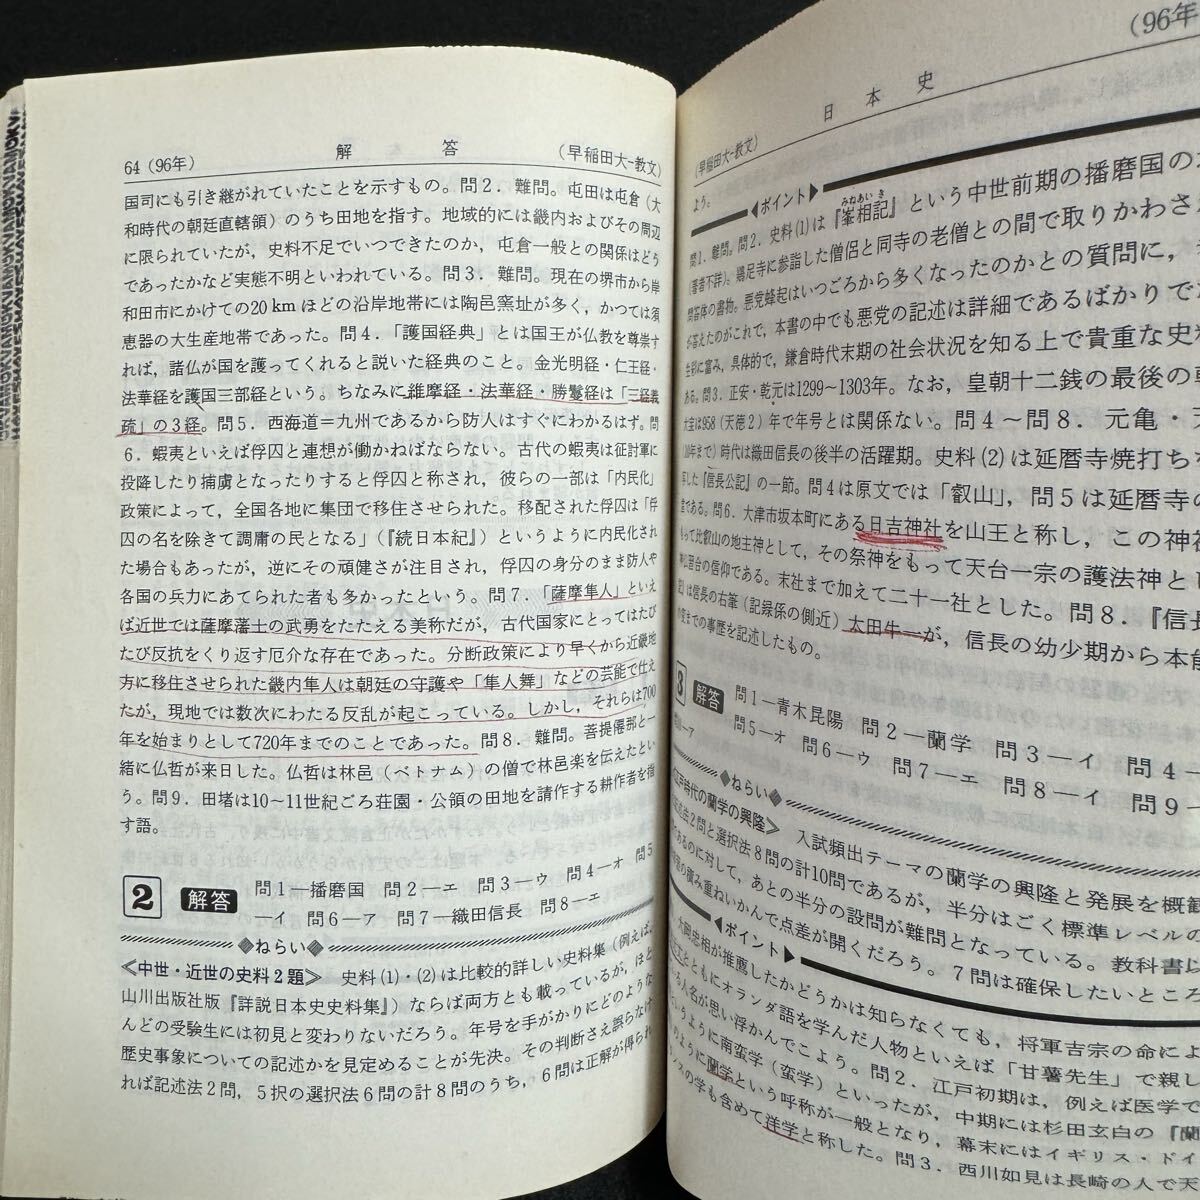 64 (96年)
解答
(早稲田大−教文)
国司にも引き継がれていたことを示すもの。問2．難問。屯田は屯倉（大
和時代の朝廷直轄領）のうち田地を指す。地域的には畿内およびその周辺
に限られていたが，史料不足でいつできたのか，屯倉一般との関係はどう
であったかなど実態不明といわれている。問3．難問。現在の堺市から岸
和田市にかけての20 kmほどの沿岸地帯には陶邑窯址が多く，かつては須
恵器の大生産地帯であった。問4．「護国経典」とは国王が仏教を尊崇す
れば，諸仏が国を護ってくれると説いた経典のこと。金光明経・仁王経・
法華経を護国三部経という。ちなみに維摩経・法華経・勝鬘経は「三経義
疏」の3経。問5．西海道＝九州であるから防人はすぐにわかるはず。問
6．蝦夷といえば俘囚と連想が働かねばならない。古代の蝦夷は征討軍に
投降したり捕虜となったりすると俘囚と称され，彼らの一部は「内民化」
政策によって，全国各地に集団で移住させられた。移配された俘囚は「俘
囚の名を除きて調庸の民となる」（『続日本紀』）というように内民化され
た場合もあったが，逆にその頑健さが注目され，俘囚の身分のまま防人や
各国の兵力にあてられた者も多かったという。問7．「薩摩隼人」といえ
ば近世では薩摩藩士の武勇をたたえる美称だが，古代国家にとってはたび
たび反抗をくり返す厄介な存在であった。分断政策により早くから近畿地
方に移住させられた畿内隼人は朝廷の守護や「隼人舞」などの芸能で仕え
たが，現地では数次にわたる反乱が起こっている。しかし，それらは700
年を始まりとして720年までのことであった。問8．難問。菩提僊那と一
緒に仏哲が来日した。仏哲は林邑（ベトナム）の僧で林邑楽を伝えたとい
う。問9．田堵は10〜11世紀ごろ荘園・公領の田地を請作する耕作者を指
す語。
2 解答 問1―播磨国 問2―エ 問3―ウ 問4―オ 問5
―イ 問6―ア 問7―織田信長 問8―エ
◆ねらい◆
≪中世・近世の史料2題≫ 史料(1)・(2)は比較的詳しい史料集（例えば，
山川出版社版『詳説日本史史料集』）ならば両方とも載っているが，ほと
んどの受験生には初見と変わりないだろう。年号を手がかりにどのような
歴史事象についての記述かを見定めることが先決。その判断さえ誤らなけ
れば記述法2問，5択の選択法6問の計8問のうち，6問は正解が得られ
(96年
日本史
(早稲田大−教文)
よう。
◀ポイント▶
問1．難問。問2．史料(1)は『峯相記』という中世前期の播磨国の
みねあいき
(著者不詳)。鶏足寺に参詣した僧侶と同寺の老僧との間で取りかわさ
問答体の書物。悪党蜂起はいつごろから多くなったのかとの質問に，
が答えたのがこれで，本書の中でも悪党の記述は詳細であるばかりで
性に富み，具体的で，鎌倉時代末期の社会状況を知る上で貴重な史
ある。問3．正安・乾元は1299〜1303年。なお，皇朝十二銭の最後の
大宝は958（天徳2）年で年号とは関係ない。問4〜問8．元亀・天
年まで）時代は織田信長の後半の活躍期。史料(2)は延暦寺焼打ち
した『信長公記』の一節。問4は原文では「叡山」，問5は延暦寺の
である。問6．大津市坂本町にある日吉神社を山王と称し，この神
もって比叡山の地主神として，その祭神をもって天台一宗の護法神と
仏習合の信仰である。末社まで加えて二十一社とした。問8．『信長
は信長の右筆（記録係の側近）太田牛一が，信長の幼少期から本能
までの事歴を記述したもの。
3 解答 問1―青木昆陽 問2―蘭学 問3―イ 問4―
問5―オ 問6―ウ 問7―エ 問8―イ 問9―
―ア
◆ねらい◆
江戸時代の蘭学の興隆≫ 入試頻出テーマの蘭学の興隆と発展を概観
法2問と選択法8問の計10問であるが，半分はごく標準レベルの
であるのに対して，あとの半分の設問が難問となっている。教科書以
積み重ねいかんで点差が開くだろう。7問は確保したいところ
◀ポイント▶
大岡忠相が推薦したかどうかは知らなくても，将軍吉宗の命によ
とともにオランダ語を学んだ人物といえば「甘薯先生」で親し
人名が思い浮かんでこよう。問2．江戸初期は，例えば医学で
ように南蛮学（蛮学）といったが，中期には杉田玄白の『蘭
のように蘭学という呼称が一般となり，幕末にはイギリス・ドイ
スの学も含めて洋学と称した。問3．西川如見は長崎の人で天